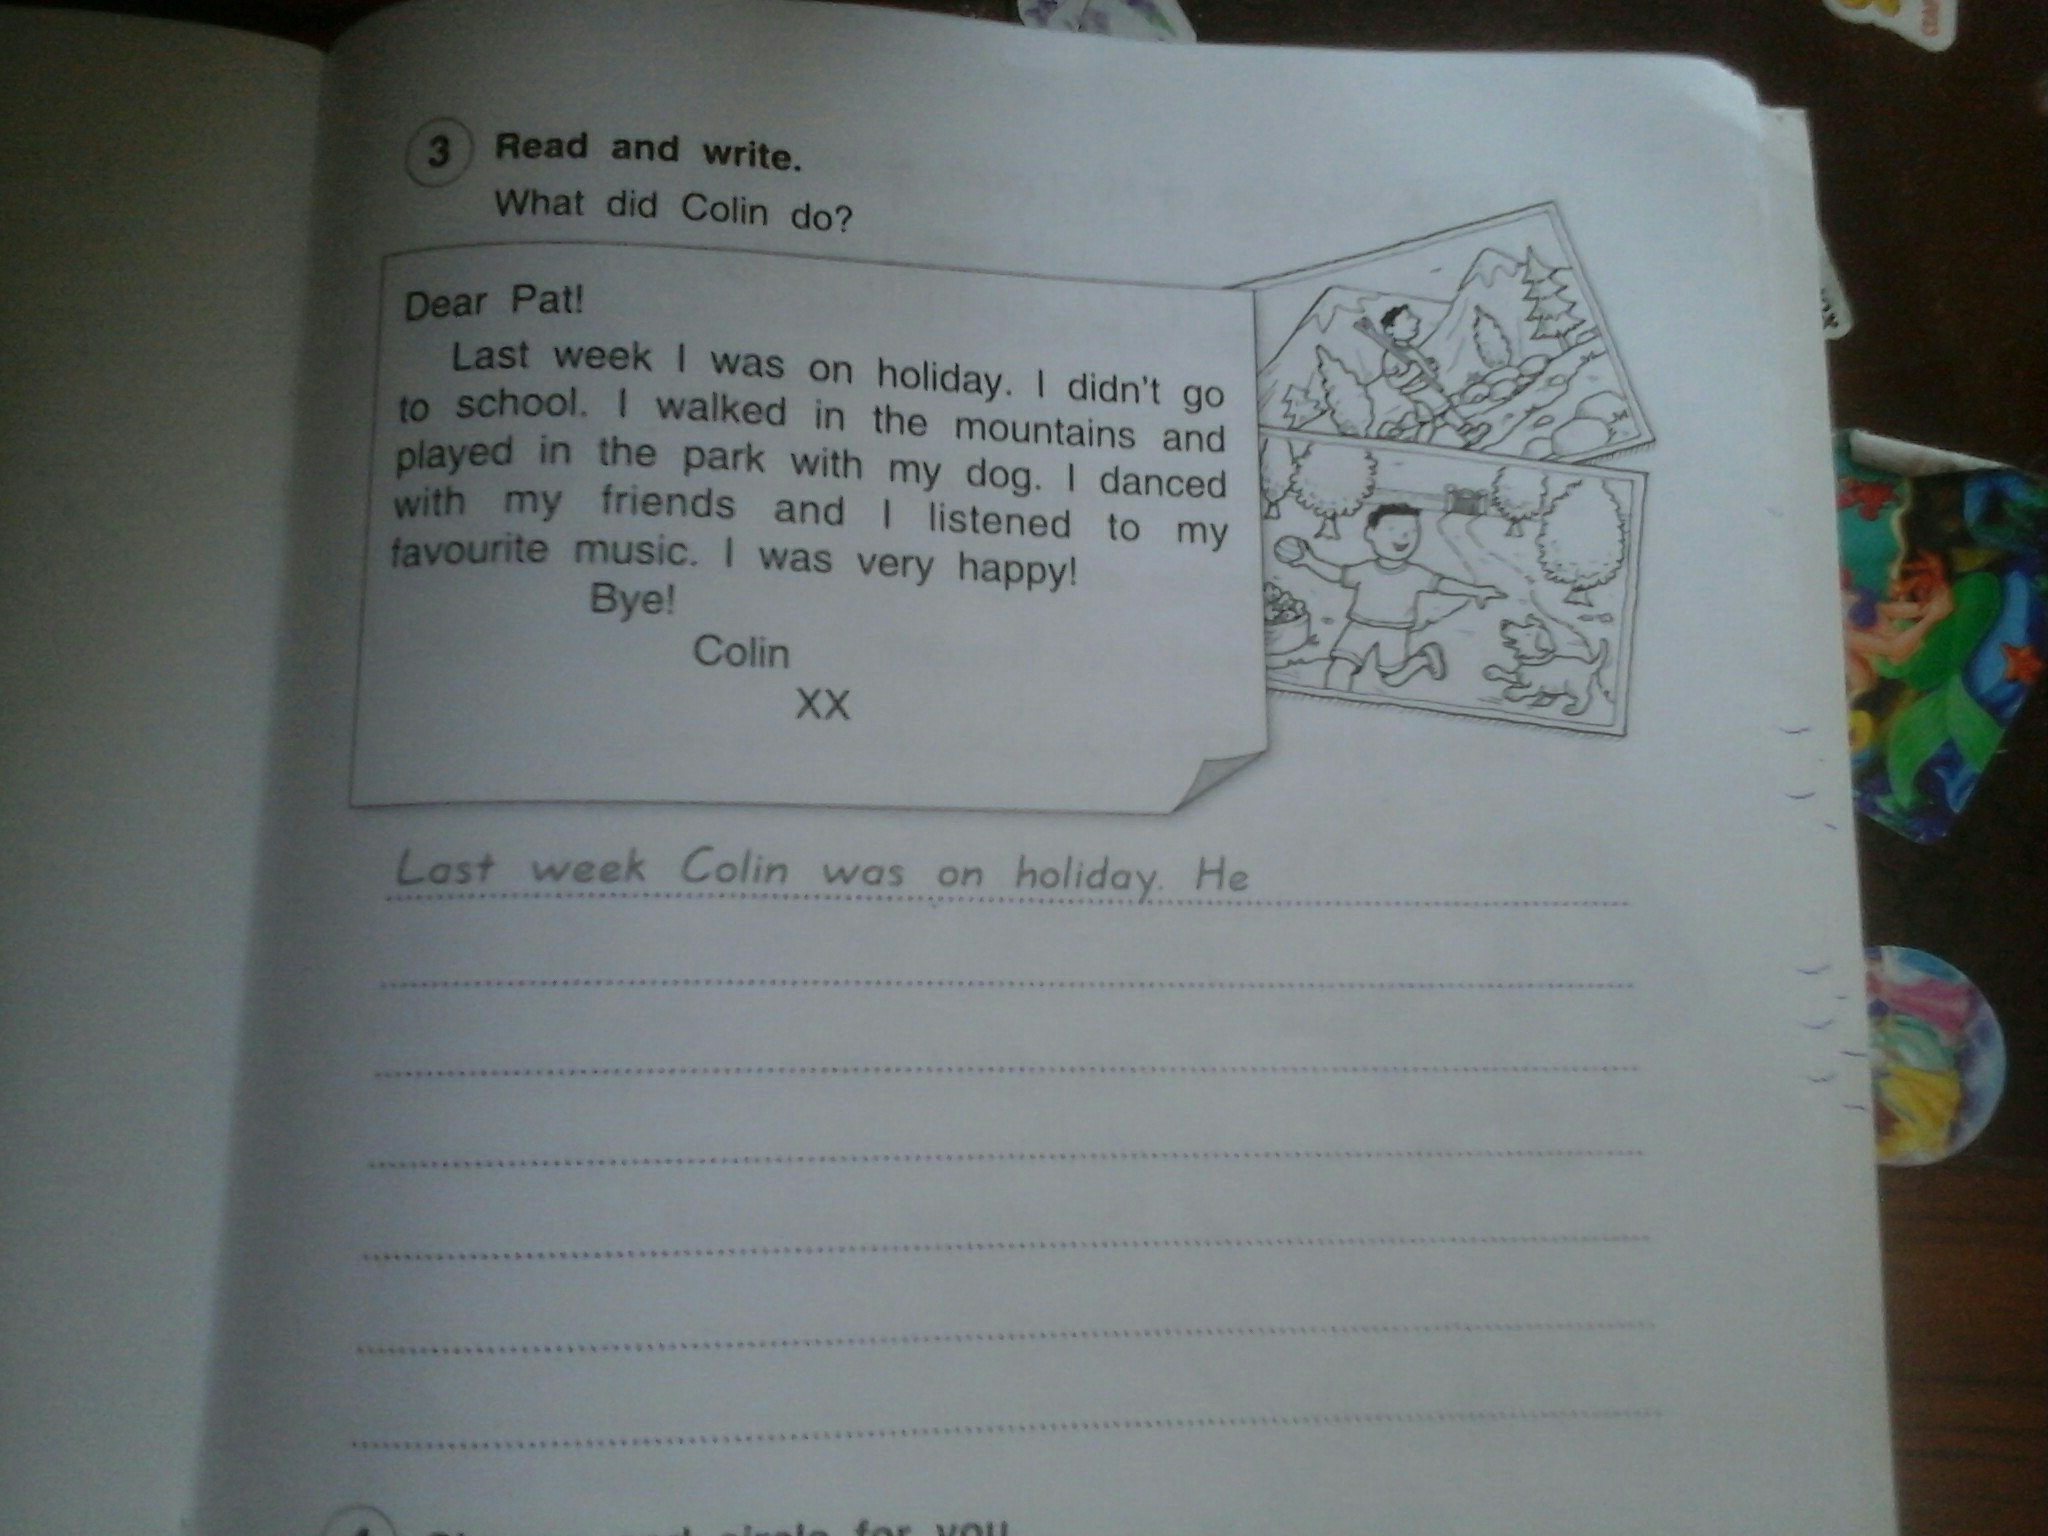 3 Read and write.
What did Colin do?
Dear Pat!
Last week I was on holiday. I didn't go
to school. I walked in the mountains and
played in the park with my dog. I danced
with my friends and I listened to my
favourite music. I was very happy!
Bye!
Colin
XX
Last week Colin was on holiday. He
circle for you